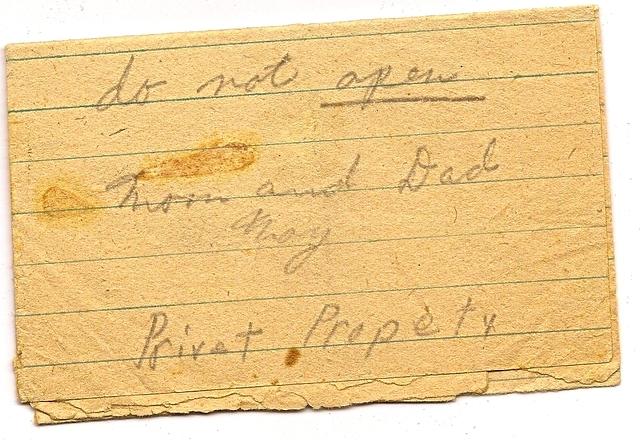 do not open
Mom and Dad
May
Privet Propety